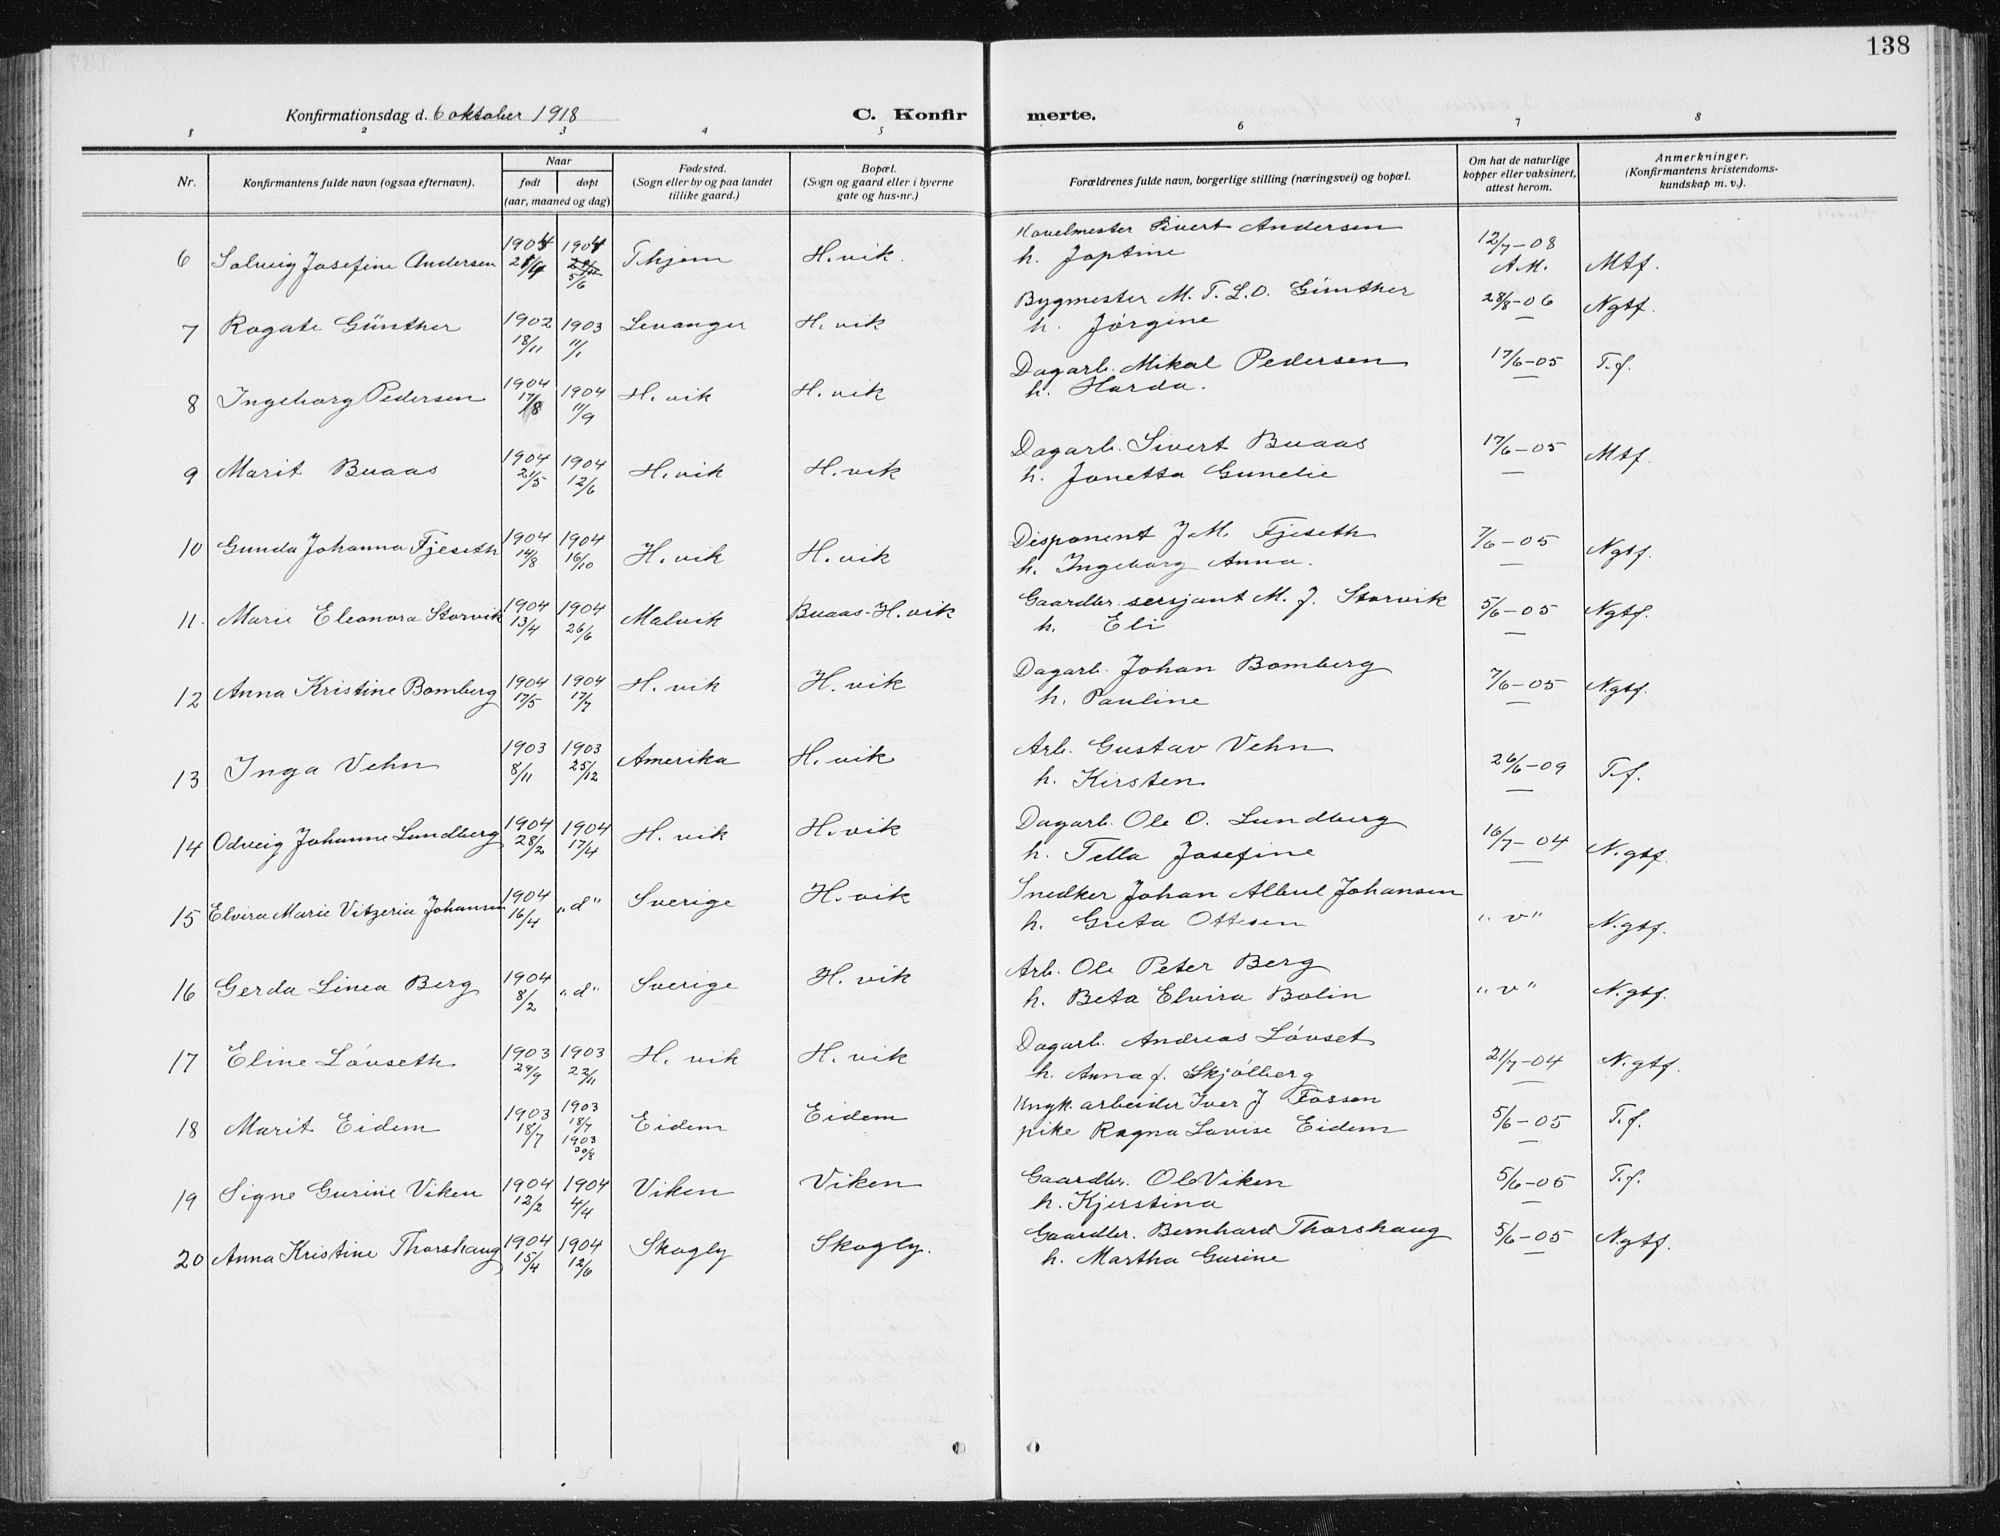 138
Konfirmationsdag d. 6 oktober 1918
C. Konfirmerte.
1 2 3 4 5 6 7 8
Nr.
Konfirmantens fulde navn (ogsaa efternavn).
Naar
født døpt
(aar, maaned og dag)
Fødested.
(Sogn eller by og paa landet
tillike gaard.)
Bopæl.
(Sogn og gaard eller i byerne
gate og hus-nr.)
Forældrenes fulde navn, borgerlige stilling (næringsvei) og bopæl.
Om hat de naturlige
kopper eller vaksinert,
attest herom.
Anmerkninger.
(Konfirmantens kristendoms-
kundskap m. v.).
6 Solveig Josefine Andersen 1904 28/4 1904 5/6 Thjem H.vik. Sivert Andersen
h. Joptine 12/7-08 A.M. Mtf.
7 Rogate Günther 1902 18/11 1903 11/1 Levanger H.vik Bygmester M. T. L. O. Günther
h. Jørgine 28/8-06 Ngtf.
8 Ingeborg Pedersen 1904 17/8 1904 11/9 H.vik H.vik Dagarb. Mikal Pedersen
h. Harda. 17/6-05 T.f.
9 Marit Buaas 1904 21/5 1904 12/6 H.vik H.vik Dagarb. Sivert Buaas
h. Jonetta Gunelie 17/6-05 Mtf.
10 Gunda Johanna Fjeseth 1904 14/8 1904 16/10 H.vik H.vik Disponent J.M. Fjeseth
h. Ingeborg Anna. 7/6-05 Ngtf.
11. Marie Eleonora Storvik 1904 13/4 1904 26/6 Malvik Buaas-H.vik Gaardbr. sersjant M. J. Storvik
h. Eli 5/6-05 Ngtf.
12 Anna Kristine Bomberg 1904 17/5 1904 17/7 H.vik H.vik Dagarb. Johan Bomberg
h. Pauline 7/6-05 N.gtf.
13 Inga Vehn 1903 8/11 1903 25/12 Amerika H.vik Arb. Gustav Vehn
h. Kirsten 26/6-09 T.f.
14 Odveig Johanne Lundberg 1904 28/2 1904 17/4 H.vik H.vik Dagarb. Ole O. Lundberg
h. Tella Josefine 16/7-04 N.gtf.
15 Elvira Marie Vitzeria Johansen 1904 16/4 "d" Sverige H.vik Snedker Johan Johansen
h. Greta Ottesen "v" N.gtf.
16 Gerda Linea Berg 1904 8/2 "d" Sverige H.vik Arb. Ole Peter Berg
h. Beta Elvira Bolin "v" N.gtf.
17 Eline Løvseth 1903 29/9 1903 22/11 H.vik H.vik Dagarb. Andreas Løvset
h. Anna f. Skjølberg 21/7-04 N.gtf.
18 Marit Eidem 1903 18/7 1903 18/7 1903 30/8 Eidem Eidem Ungk. arbeider Iver J Fossen
pike Ragna Lovise Eidem 5/6-05 T.f.
19 Signe Gurine Viken 1904 12/2 1904 4/4 Viken Viken Gaardbr. Ole Viken
h. Kjerstina 5/6-05 T.f.
20 Anna Kristine Thorshaug 1904 15/4 1904 12/6 Skogly Skogly. Gaardbr. Bernhard Thorshaug
h. Martha Gurine 5/6-05 N.gtf.